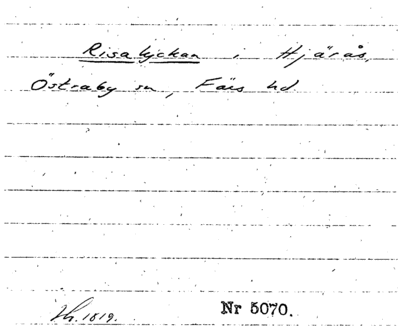 Risalyckan i Hjärås,
Östraby sn, Färs hd
Vh. 1819. Nr 5070.